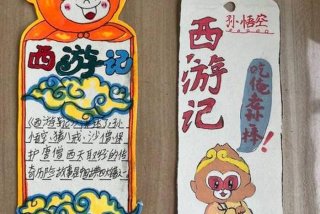 西游记
《西游记》
悟空、猪八戒、沙僧保
护唐僧西天取经的传
奇历险故事
孙悟空
西游记
吃俺老孙一棒!